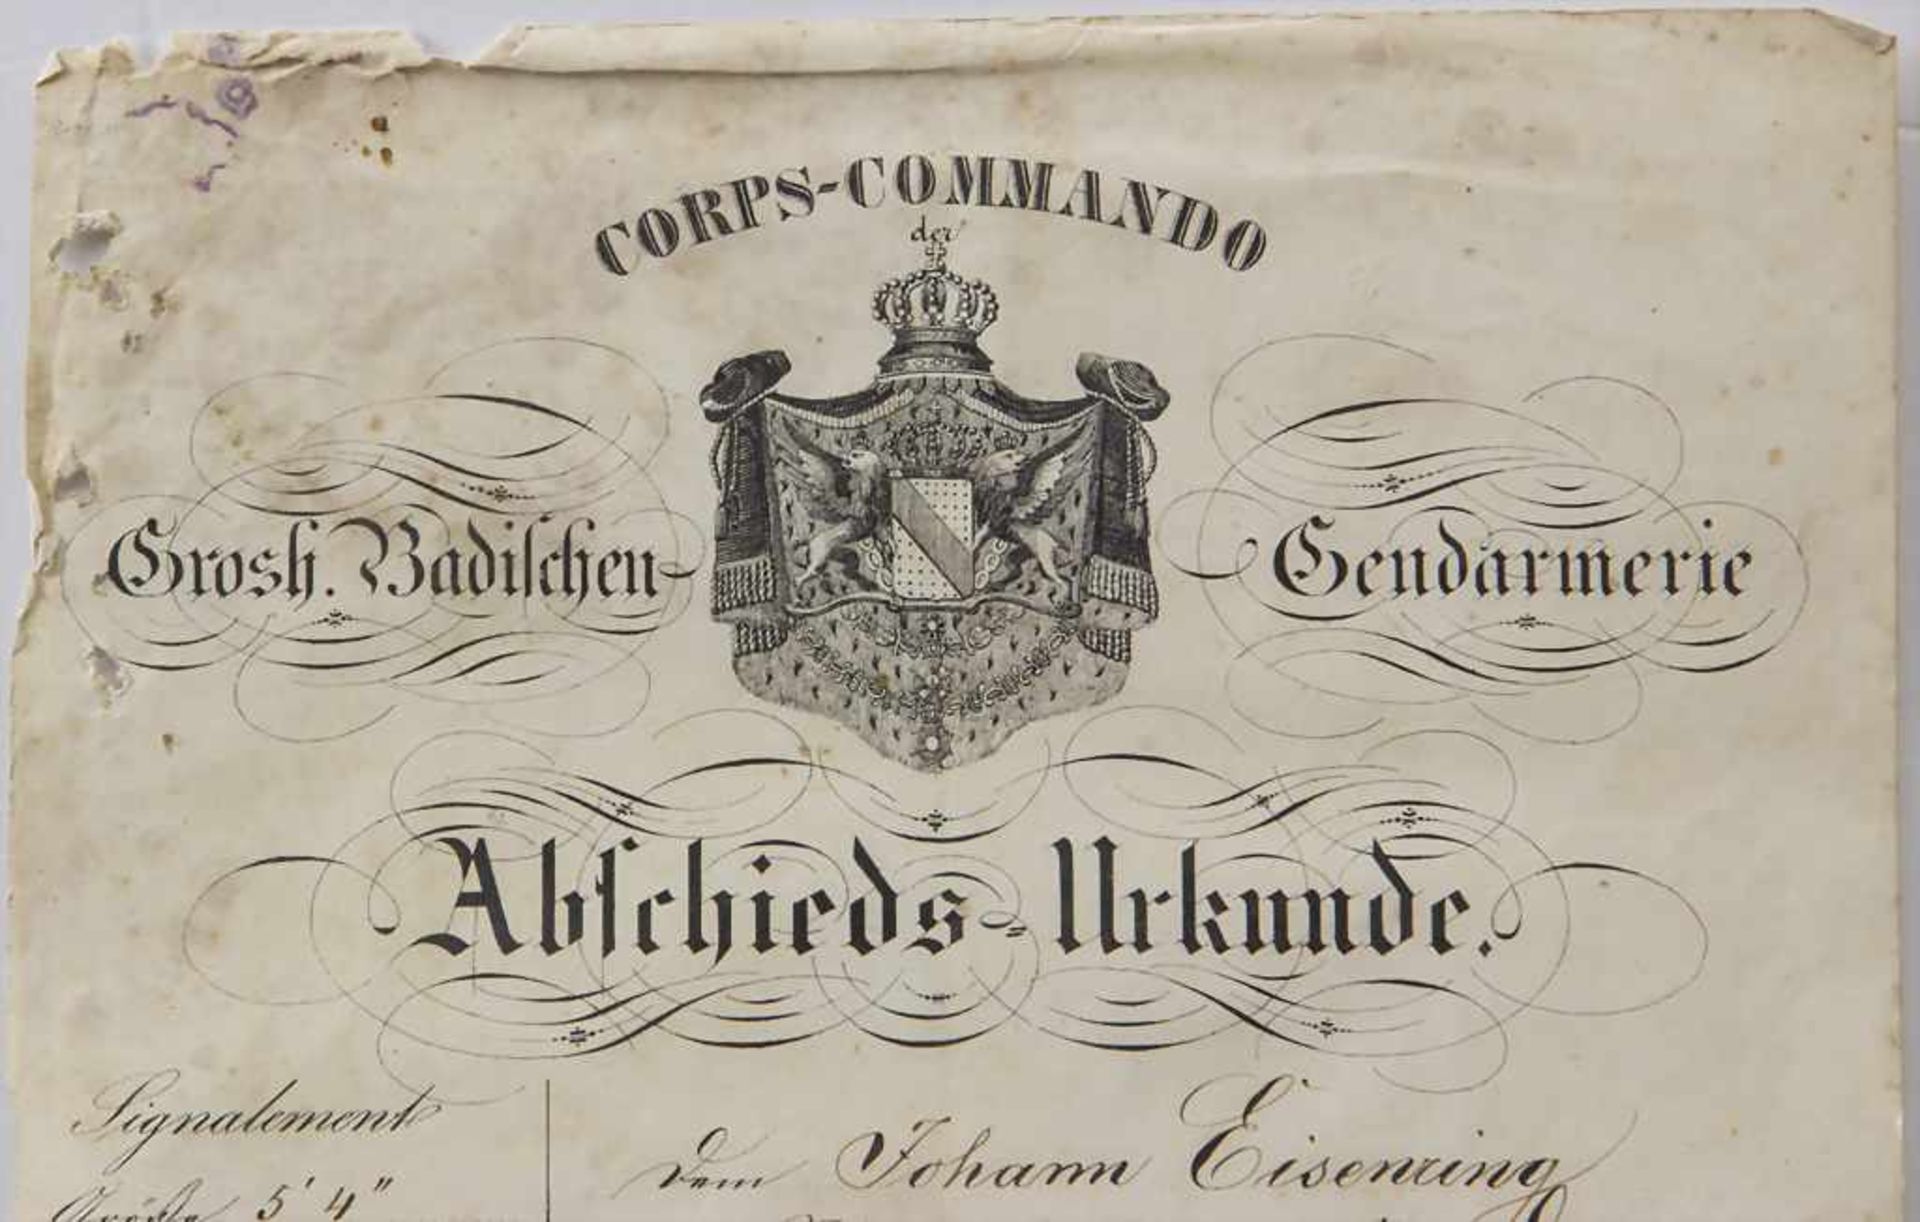 CORPS-COMMANDO
der
Grosh. Badischen Gendarmerie
Abschieds-Urkunde.
Signalement
Dem Johann Eisenring
Größe 5' 4"